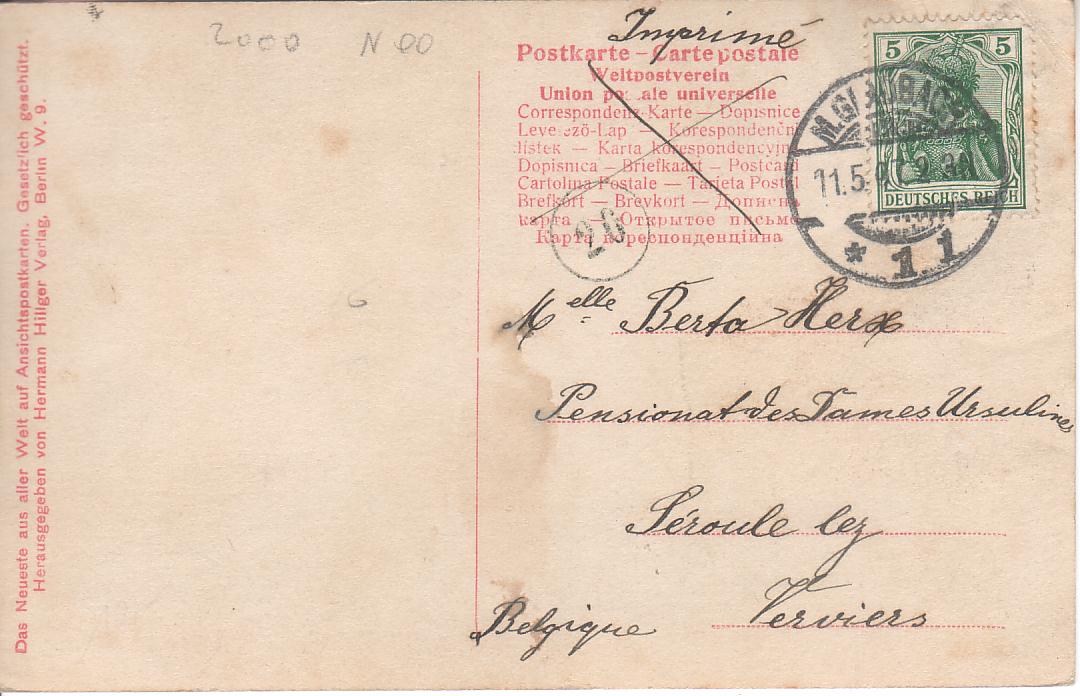 2000 N 00
Das Neueste aus aller Welt auf Ansichtspostkarten. Gesetzlich geschützt.
Herausgegeben von Hermann Hillger Verlag, Berlin W. 9.
6
Imprimé
Postkarte – Carte postale
Weltpostverein
Union postale universelle
Correspondenz-Karte — Dopisnice
Levelező-Lap — Korespondenční
lístek — Karta korespondencyjna
Dopisnica — Briefkaart — Postcard
Cartolina Postale — Tarjeta Postal
Brefkort — Brevkort — Дописна
карта — Открытое письмо
Карта кореспонденційна
5 5
DEUTSCHES REICH
M.GLADBACH
11.5.
* 1 1
20
Melle Berta Herx
Pensionat des Dames Ursulines
Séroule lez
Verviers
Belgique